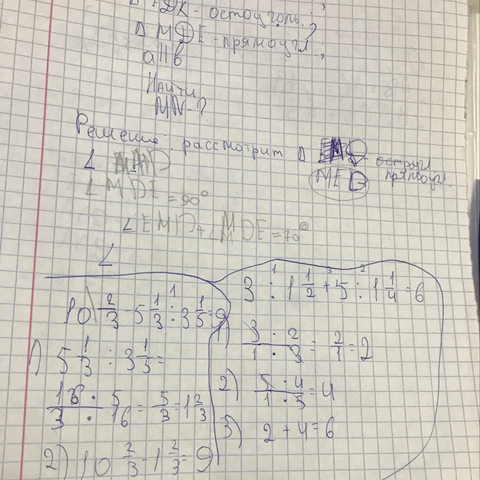 EDK - остоуголь.;
Δ MDE - прямоугл.,
a||b
Найти
MN - ?
Решение: рассмотрит Δ остоугл
∠ MED прямоугл.
∠ MDE = 90°
∠ EMD + ∠ MDE = 70°
∠
10 2/3 - 5 1/3 : 3 1/5 = 9
1) 5 1/3 : 3 1/5 =
16/3 · 5/16 = 5/3 = 1 2/3
2) 10 2/3 - 1 2/3 = 9
3 : 1 1/2 + 5 : 1 1/4 = 6
1) 3 · 2 / 1 · 3 = 2/1 = 2
2) 5 · 4 / 1 · 5 = 4
3) 2 + 4 = 6